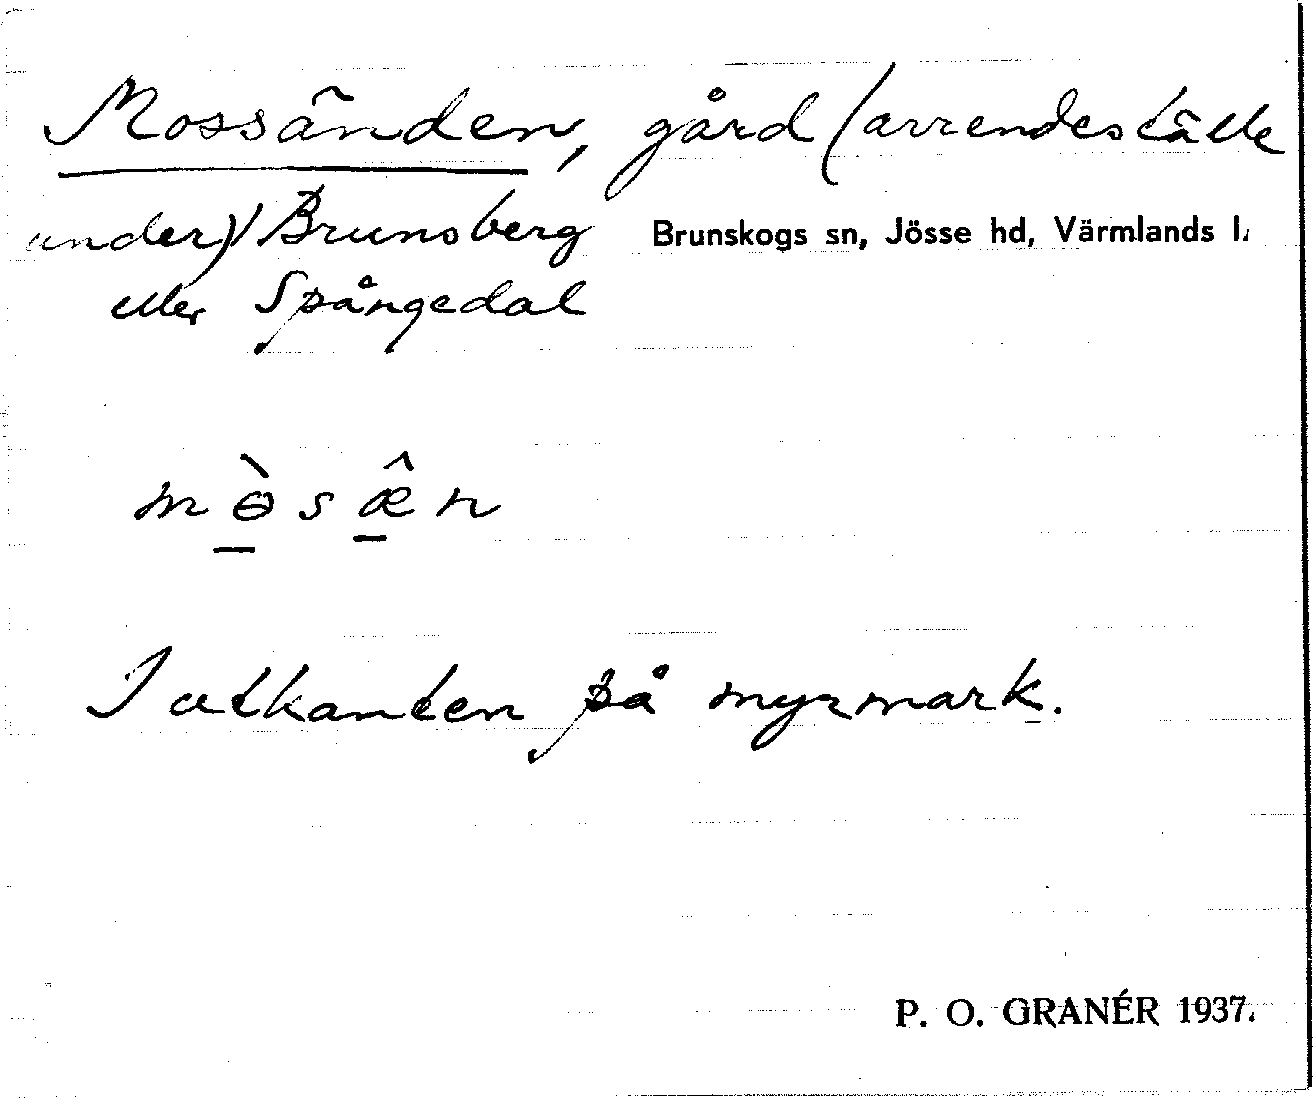 Mossänden, gård (arrendeställe
under) Brunsberg Brunskogs sn, Jösse hd, Värmlands l.
eller Spångedal
mɵ̀sæ̂n
I utkanten på myrmark.
P. O. GRANÉR 1937.